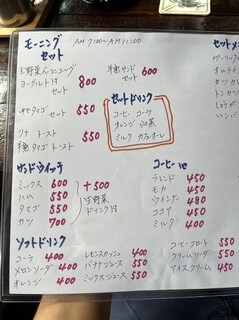 モーニング セット AM 9:00〜AM 11:00
セット 800
種サンド セット 600
タマゴ セット 550
ツナ トースト 550
種タマゴ トースト 550
セットドリンク
コーヒー コーラ
オレンジ 紅茶
ミルク カフェオーレ
サンドウィッチ
ミックス 600
ハム 550
タマゴ 550
カツ 700
+500
生野菜
ドリンク付
コーヒー他
ブレンド 450
モカ 450
ウインナー 480
ココア 450
ミルク 400
ソフトドリンク
コーラ 400
メロンソーダ 400
オレンジ 400
レモンスカッシュ 400
バナナジュース 550
ミックスジュース 550
コーヒーフロート 550
クリームソーダ 550
アイスクリーム 450
セットメ